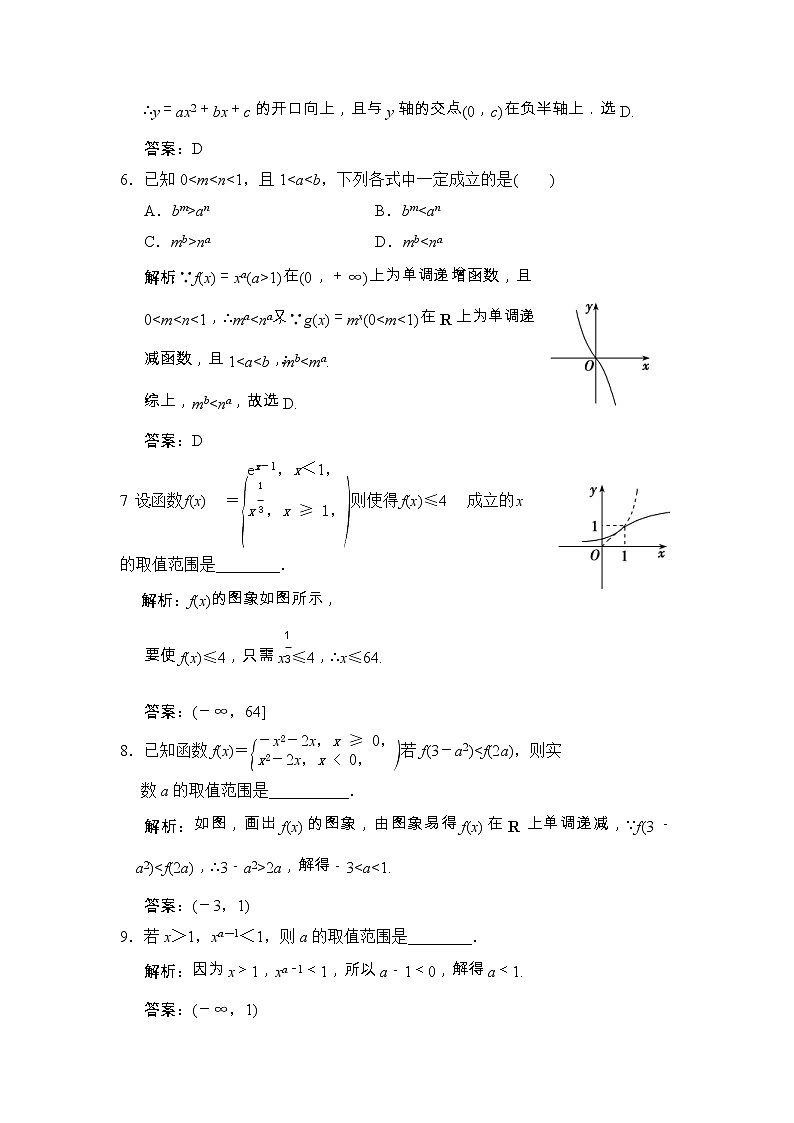 ∴y=ax²+bx+c的开口向上，且与y轴的交点(0，c)在负半轴上．选D.
答案：D
6．已知0<m<n<1，且1<a<b，下列各式中一定成立的是(　　)
A．bᵐ>aⁿ　　B．bᵐ<aⁿ
C．mᵇ>nᵃ　　D．mᵇ<nᵃ
解析：∵f(x)=xᵃ(a>1)在(0，+∞)上为单调递增函数，且
0<m<n<1，∴mᵃ<nᵃ.又∵g(x)=mˣ(0<m<1)在R上为单调递
减函数，且1<a<b，∴mᵇ<mᵃ.
综上，mᵇ<nᵃ，故选D.
答案：D
y
O
x
7 设函数f(x)={eˣ⁻¹，x<1，
x^(1/3)，x≥1，则使得f(x)≤4 成立的x
的取值范围是________．
y
1
O
1
x
解析：f(x)的图象如图所示，
要使f(x)≤4，只需x^(1/3)≤4，∴x≤64.
答案：(-∞，64]
8．已知函数f(x)={-x²-2x，x≥0，
x²-2x，x<0，若f(3-a²)<f(2a)，则实
数a的取值范围是__________．
解析：如图，画出f(x)的图象，由图象易得f(x)在R上单调递减，∵f(3-
a²)<f(2a)，∴3-a²>2a，解得-3<a<1.
答案：(-3，1)
9．若x>1，xᵃ⁻¹<1，则a的取值范围是________．
解析：因为x>1，xᵃ⁻¹<1，所以a-1<0，解得a<1.
答案：(-∞，1)